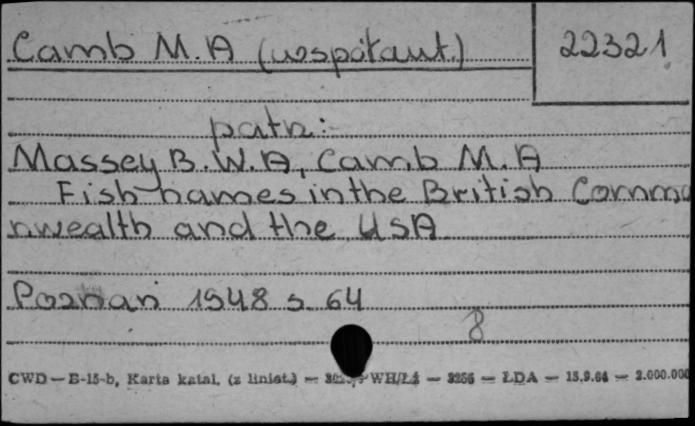 Camb M.A (współaut.)
22321
patrz:
Massey B.W.A, Camb M.A
Fish-names in the British Commo
nwealth and the USA
Poznań 1948 s. 64
8
CWD — E-15-b, Karta katal. (z liniat.) — WH/Łż — 3256 — ŁDA — 13.9.64 — 2.000.000